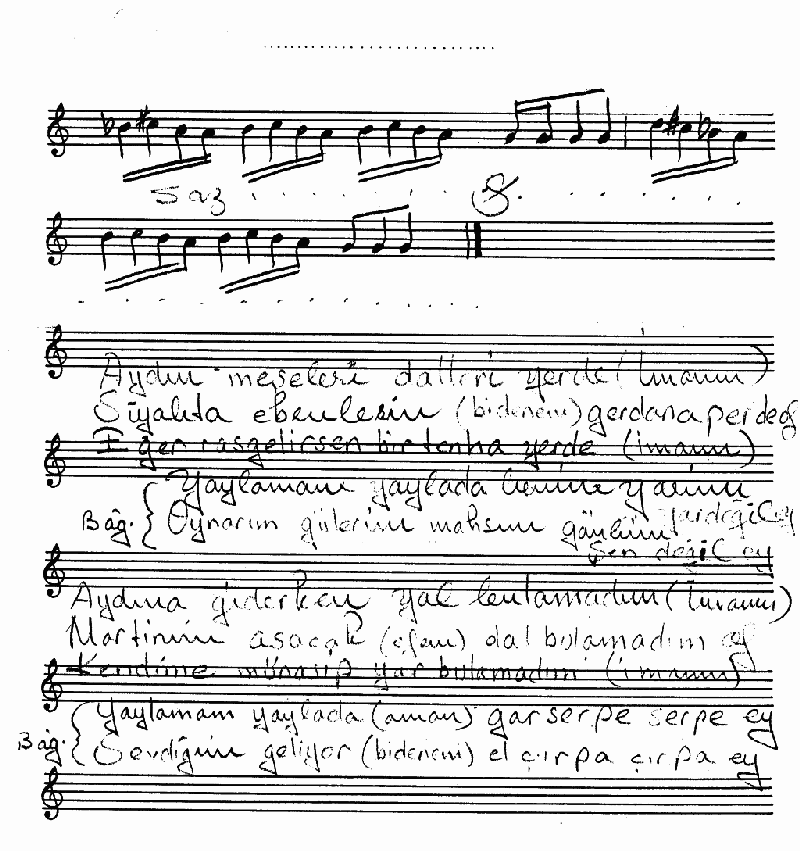 Saz
Aydın meşeleri dalleri yerde (İmanım)
Siyahta ebeulesin (bidenem) gerdana perde of
Eğer rasgelirsen bir tenha yerde (imanım)
Yaylamam yaylada benim yarim
yardeğil ey
Bağ. Oynarım gülerim mahsun gönlüm
şen değil ey
Aydına giderken yal bulamadım (İmanım)
Martinimi asacak (efem) dal bulamadım of
Kendime münasip yar bulamadım (imanım)
Yaylamam yaylada (aman) gar serpe serpe ey
Bağ. Sevdiğim geliyor (bidenem) el çırpa çırpa ey